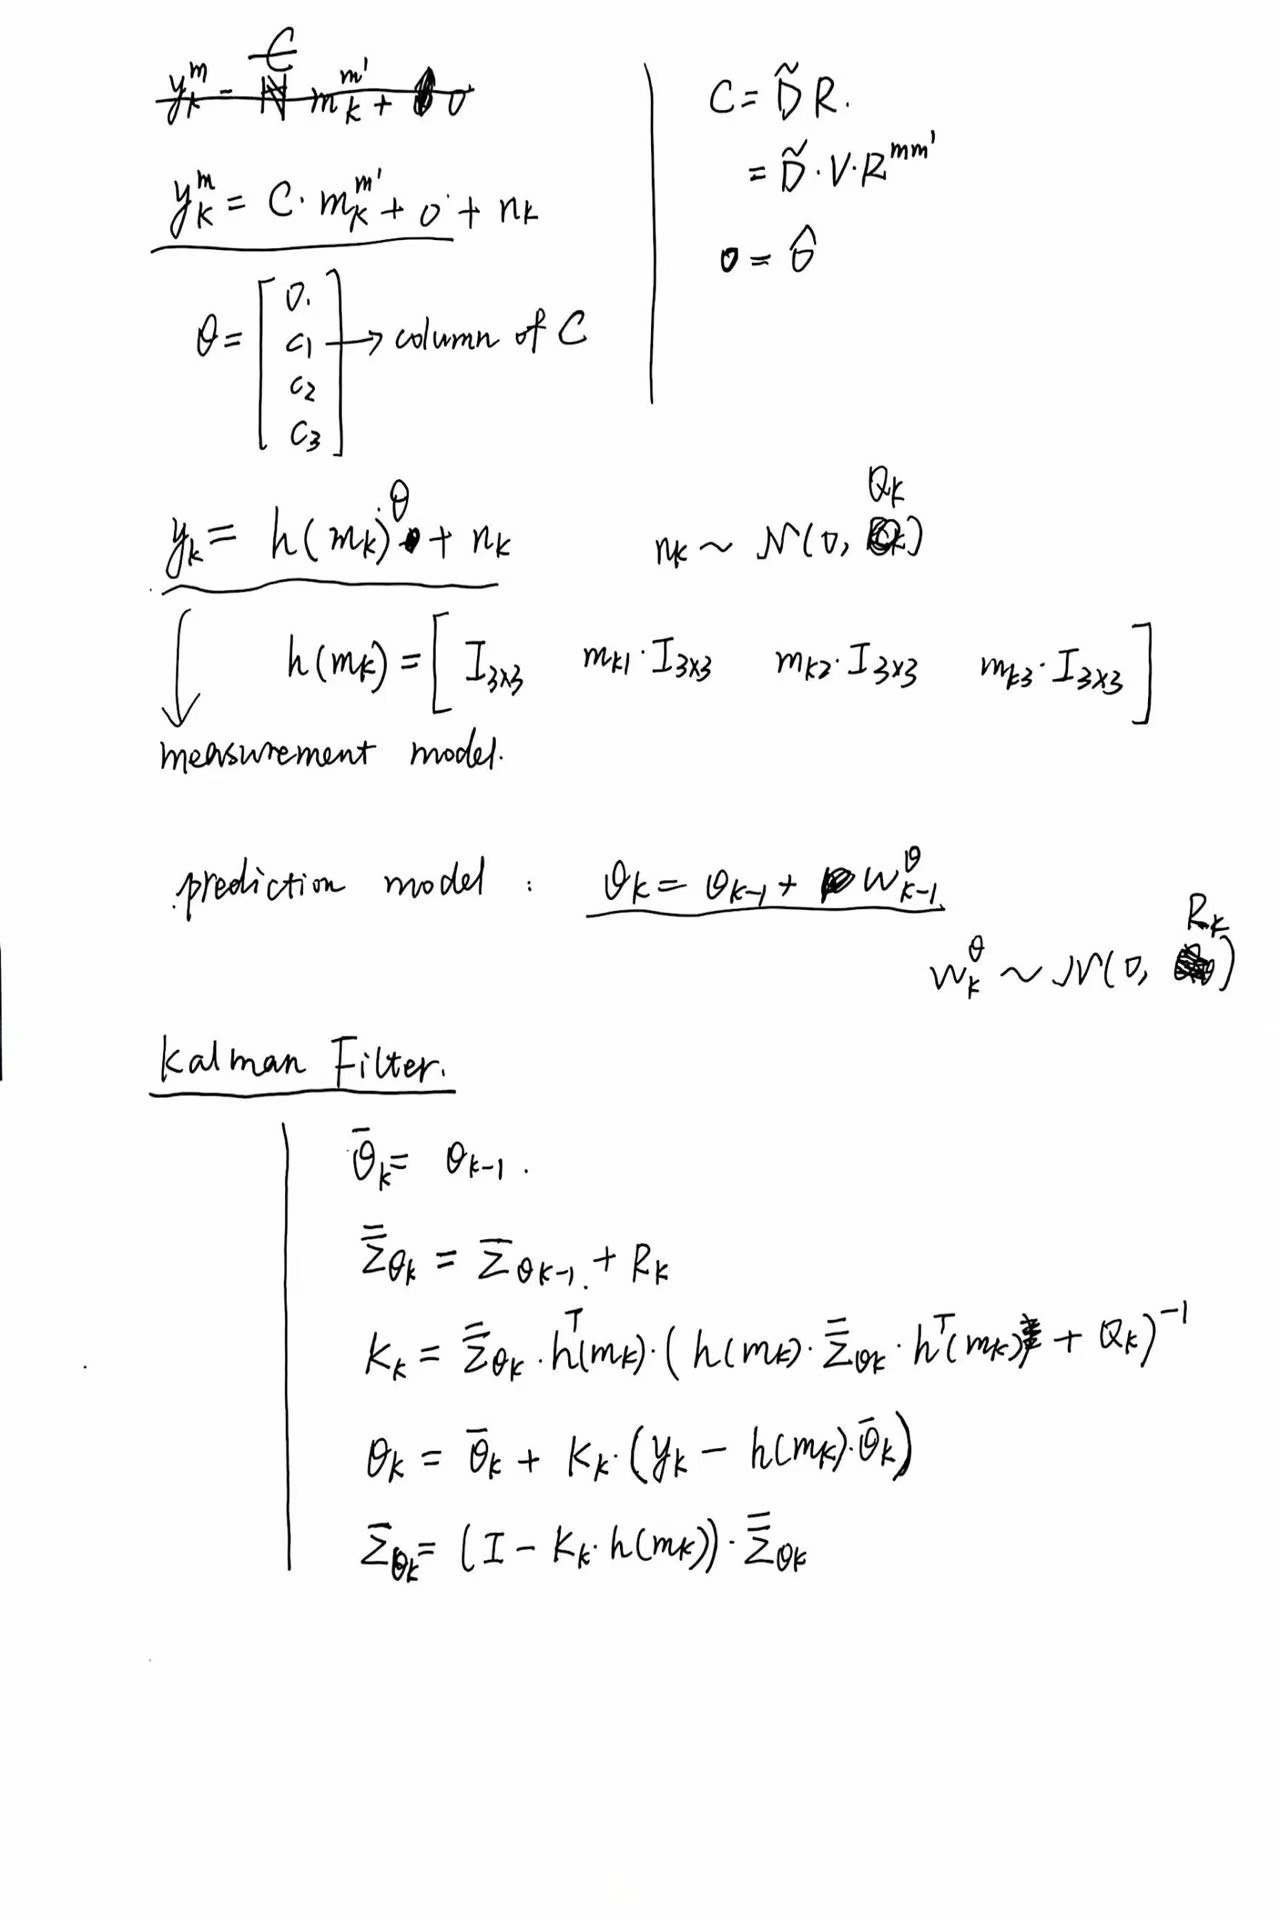 y_k^m = C m_k^{m'} + o
y_k^m = C · m_k^{m'} + o + n_k
θ = [ o. c1 c2 c3 ] → column of C
C = D̃ R.
= D̃ · V · R^{mm'}
o = ô
y_k = h(m_k) · θ + n_k
n_k ~ N(0, Q_k)
h(m_k) = [ I_{3×3} m_{k1} · I_{3×3} m_{k2} · I_{3×3} m_{k3} · I_{3×3} ]
measurement model.
prediction model : θ_k = θ_{k-1} + w_{k-1}^θ
w_k^θ ~ N(0, R_k)
Kalman Filter.
θ̄_k = θ_{k-1} .
Σ̿_{θk} = Σ̄_{θk-1} + R_k
K_k = Σ̿_{θk} · h^T(m_k) · ( h(m_k) · Σ̿_{θk} · h^T(m_k) + Q_k )^{-1}
θ_k = θ̄_k + K_k · (y_k - h(m_k) · θ̄_k)
Σ̄_{θk} = (I - K_k · h(m_k)) · Σ̿_{θk}